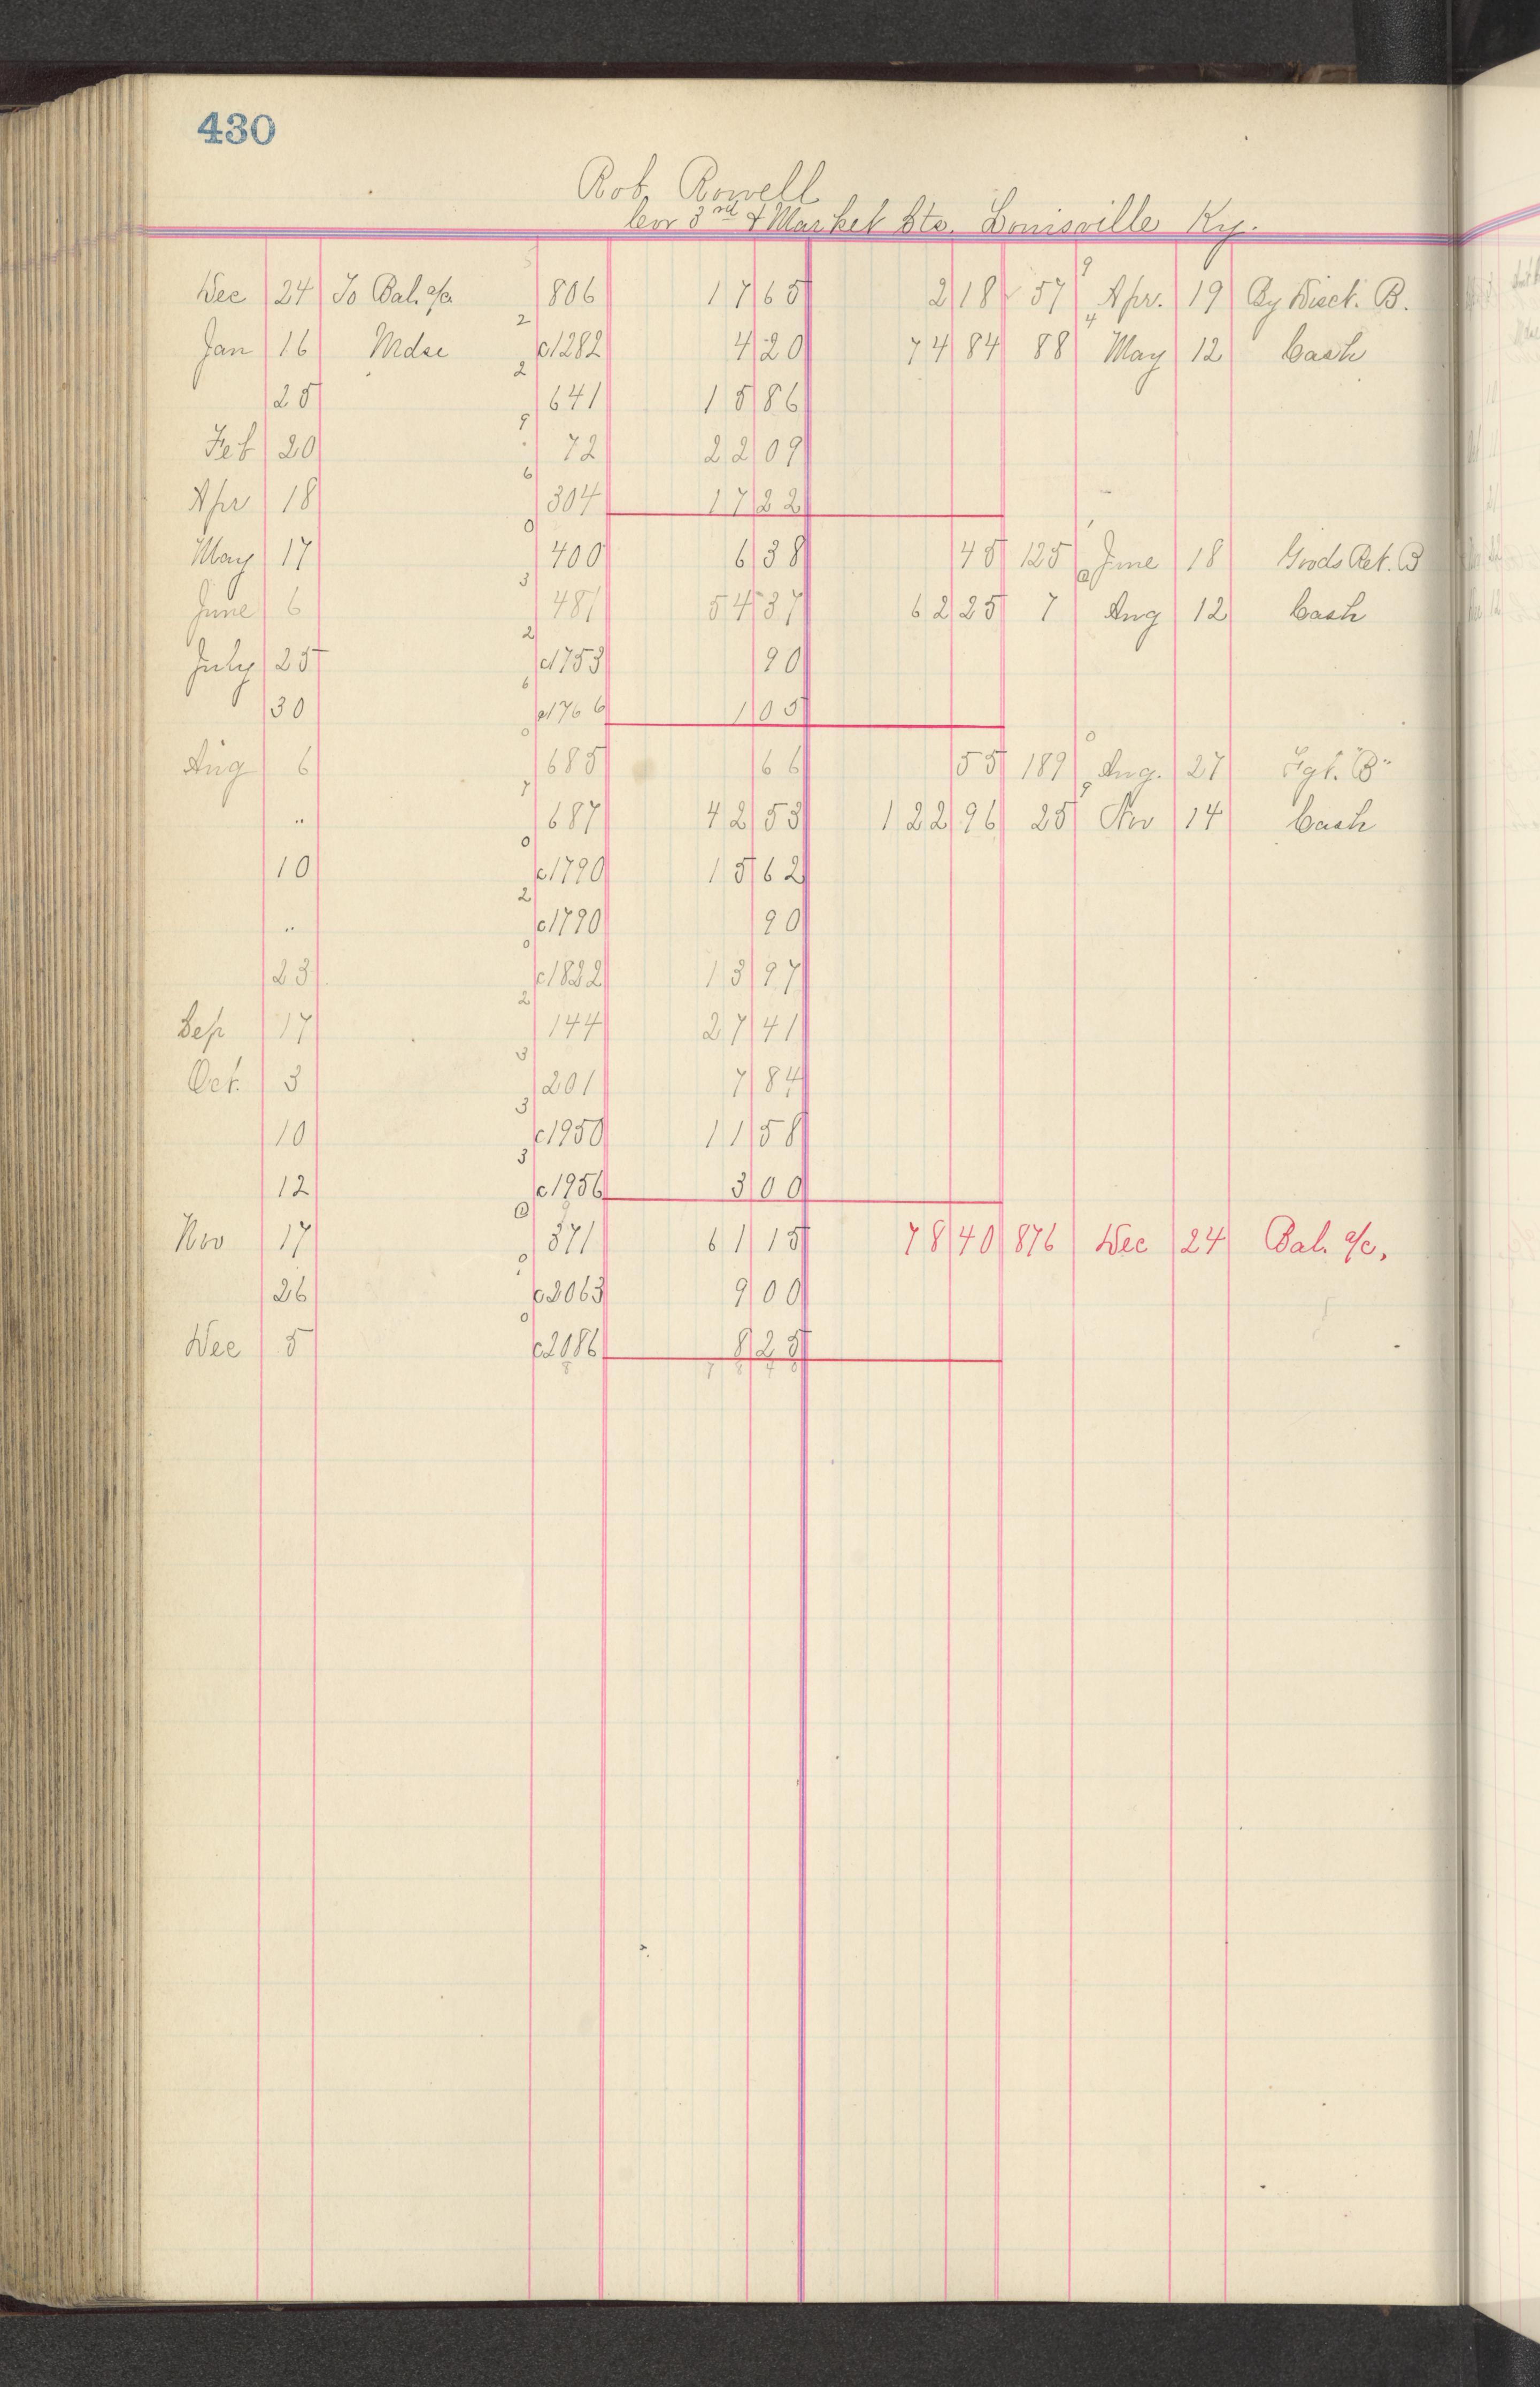 430
Rob. Rowell
Cor 3rd & Market Sts. Louisville Ky.
Dec 24 To Bal. a/c 806 17 65 2 18 57 Apr. 19 By Disct. B.
Jan 16 Mdse c1282 4 20 74 84 88 May 12 Cash
25 641 15 86
Feb 20 72 22 09
Apr 18 304 17 22
May 17 400 6 38 45 125 June 18 Goods Ret. B
June 6 481 54 37 62 25 7 Aug 12 Cash
July 25 c1753 90
30 c1766 1 05
Aug 6 685 66 55 189 Aug. 27 Fgt. B"
" 687 42 53 122 96 25 Nov 14 Cash
10 c1790 15 62
" c1790 90
23 c1822 13 97
Sep 17 144 27 41
Oct. 3 201 7 84
10 c1950 11 58
12 c1956 3 00
Nov 17 371 61 15 78 40 876 Dec 24 Bal. a/c.
26 c2063 9 00
Dec 5 c2086 8 25